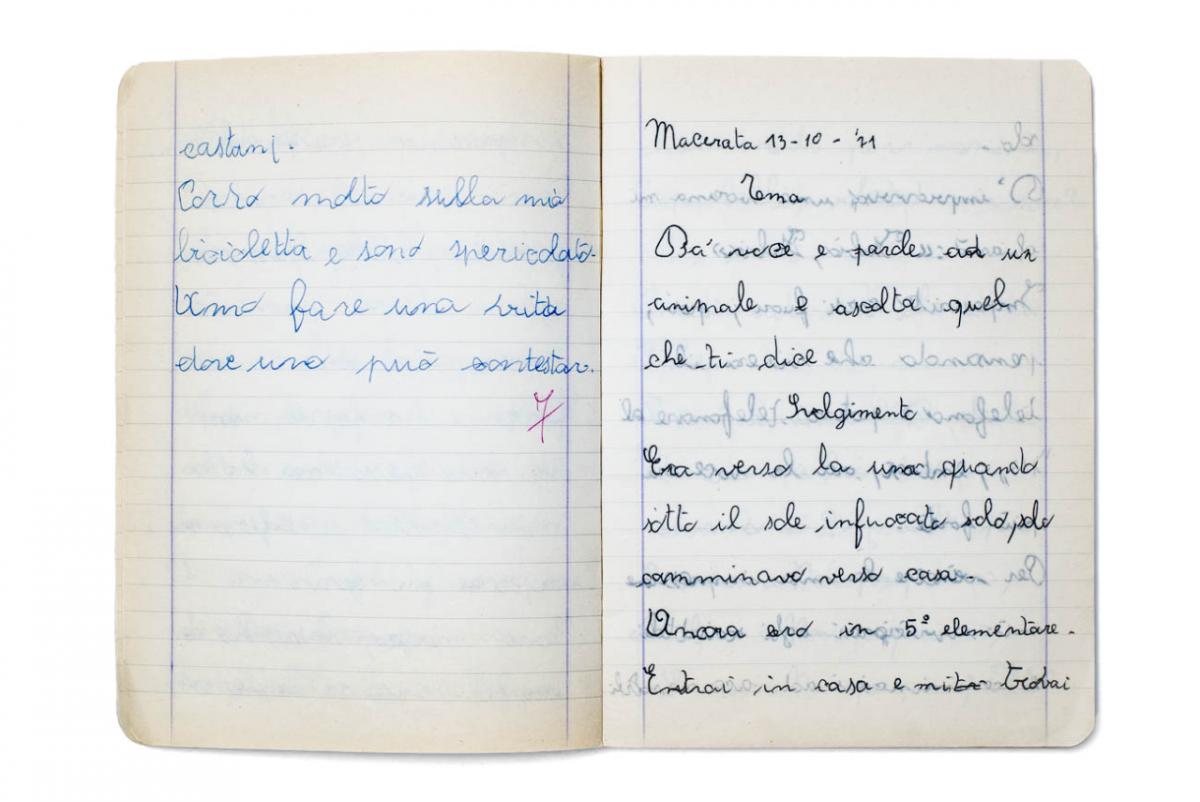 castani.
Corro molto sulla mia
bicicletta e sono spericolato.
Amo fare una vita
dove uno può contestar.
7
Macerata 13-10-'71
Tema
Dà voce e parole ad un
animale e ascolta quel
che ti dice
Svolgimento
Era verso la una quando
sotto il sole infuocato solo, solo
camminavo verso casa.
Ancora ero in 5ª elementare.
Entrai in casa e mi trovai